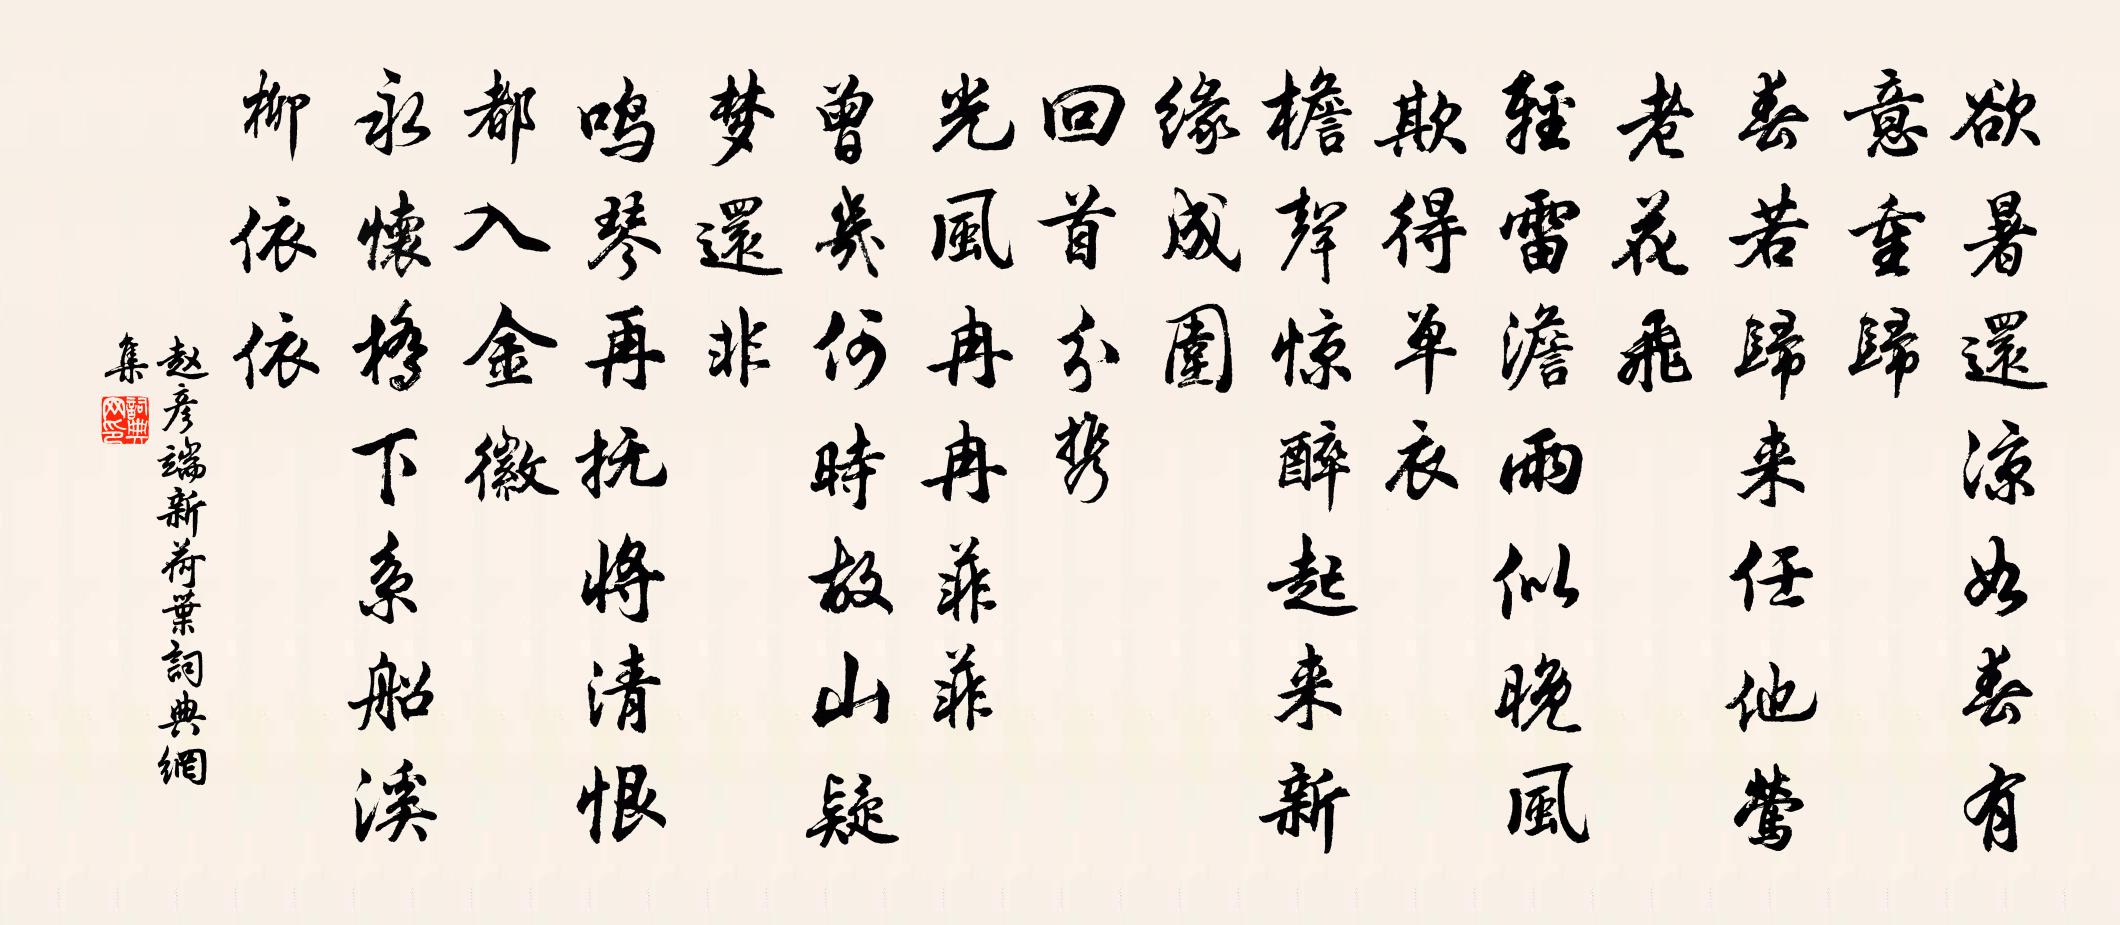 欲暑還凉如春有
意重歸
春若歸来任他莺
老花飛
輕雷澹雨似晚風
欺得单衣
檐聲惊醉起来新
緣成圍
回首分携
光風冉冉菲菲
曾幾何時故山疑
梦還非
鸣琴再抚將清恨
都入金徽
永懷橋下系船溪
柳依依
赵彦端新荷葉詞典網
集
詞典
网印